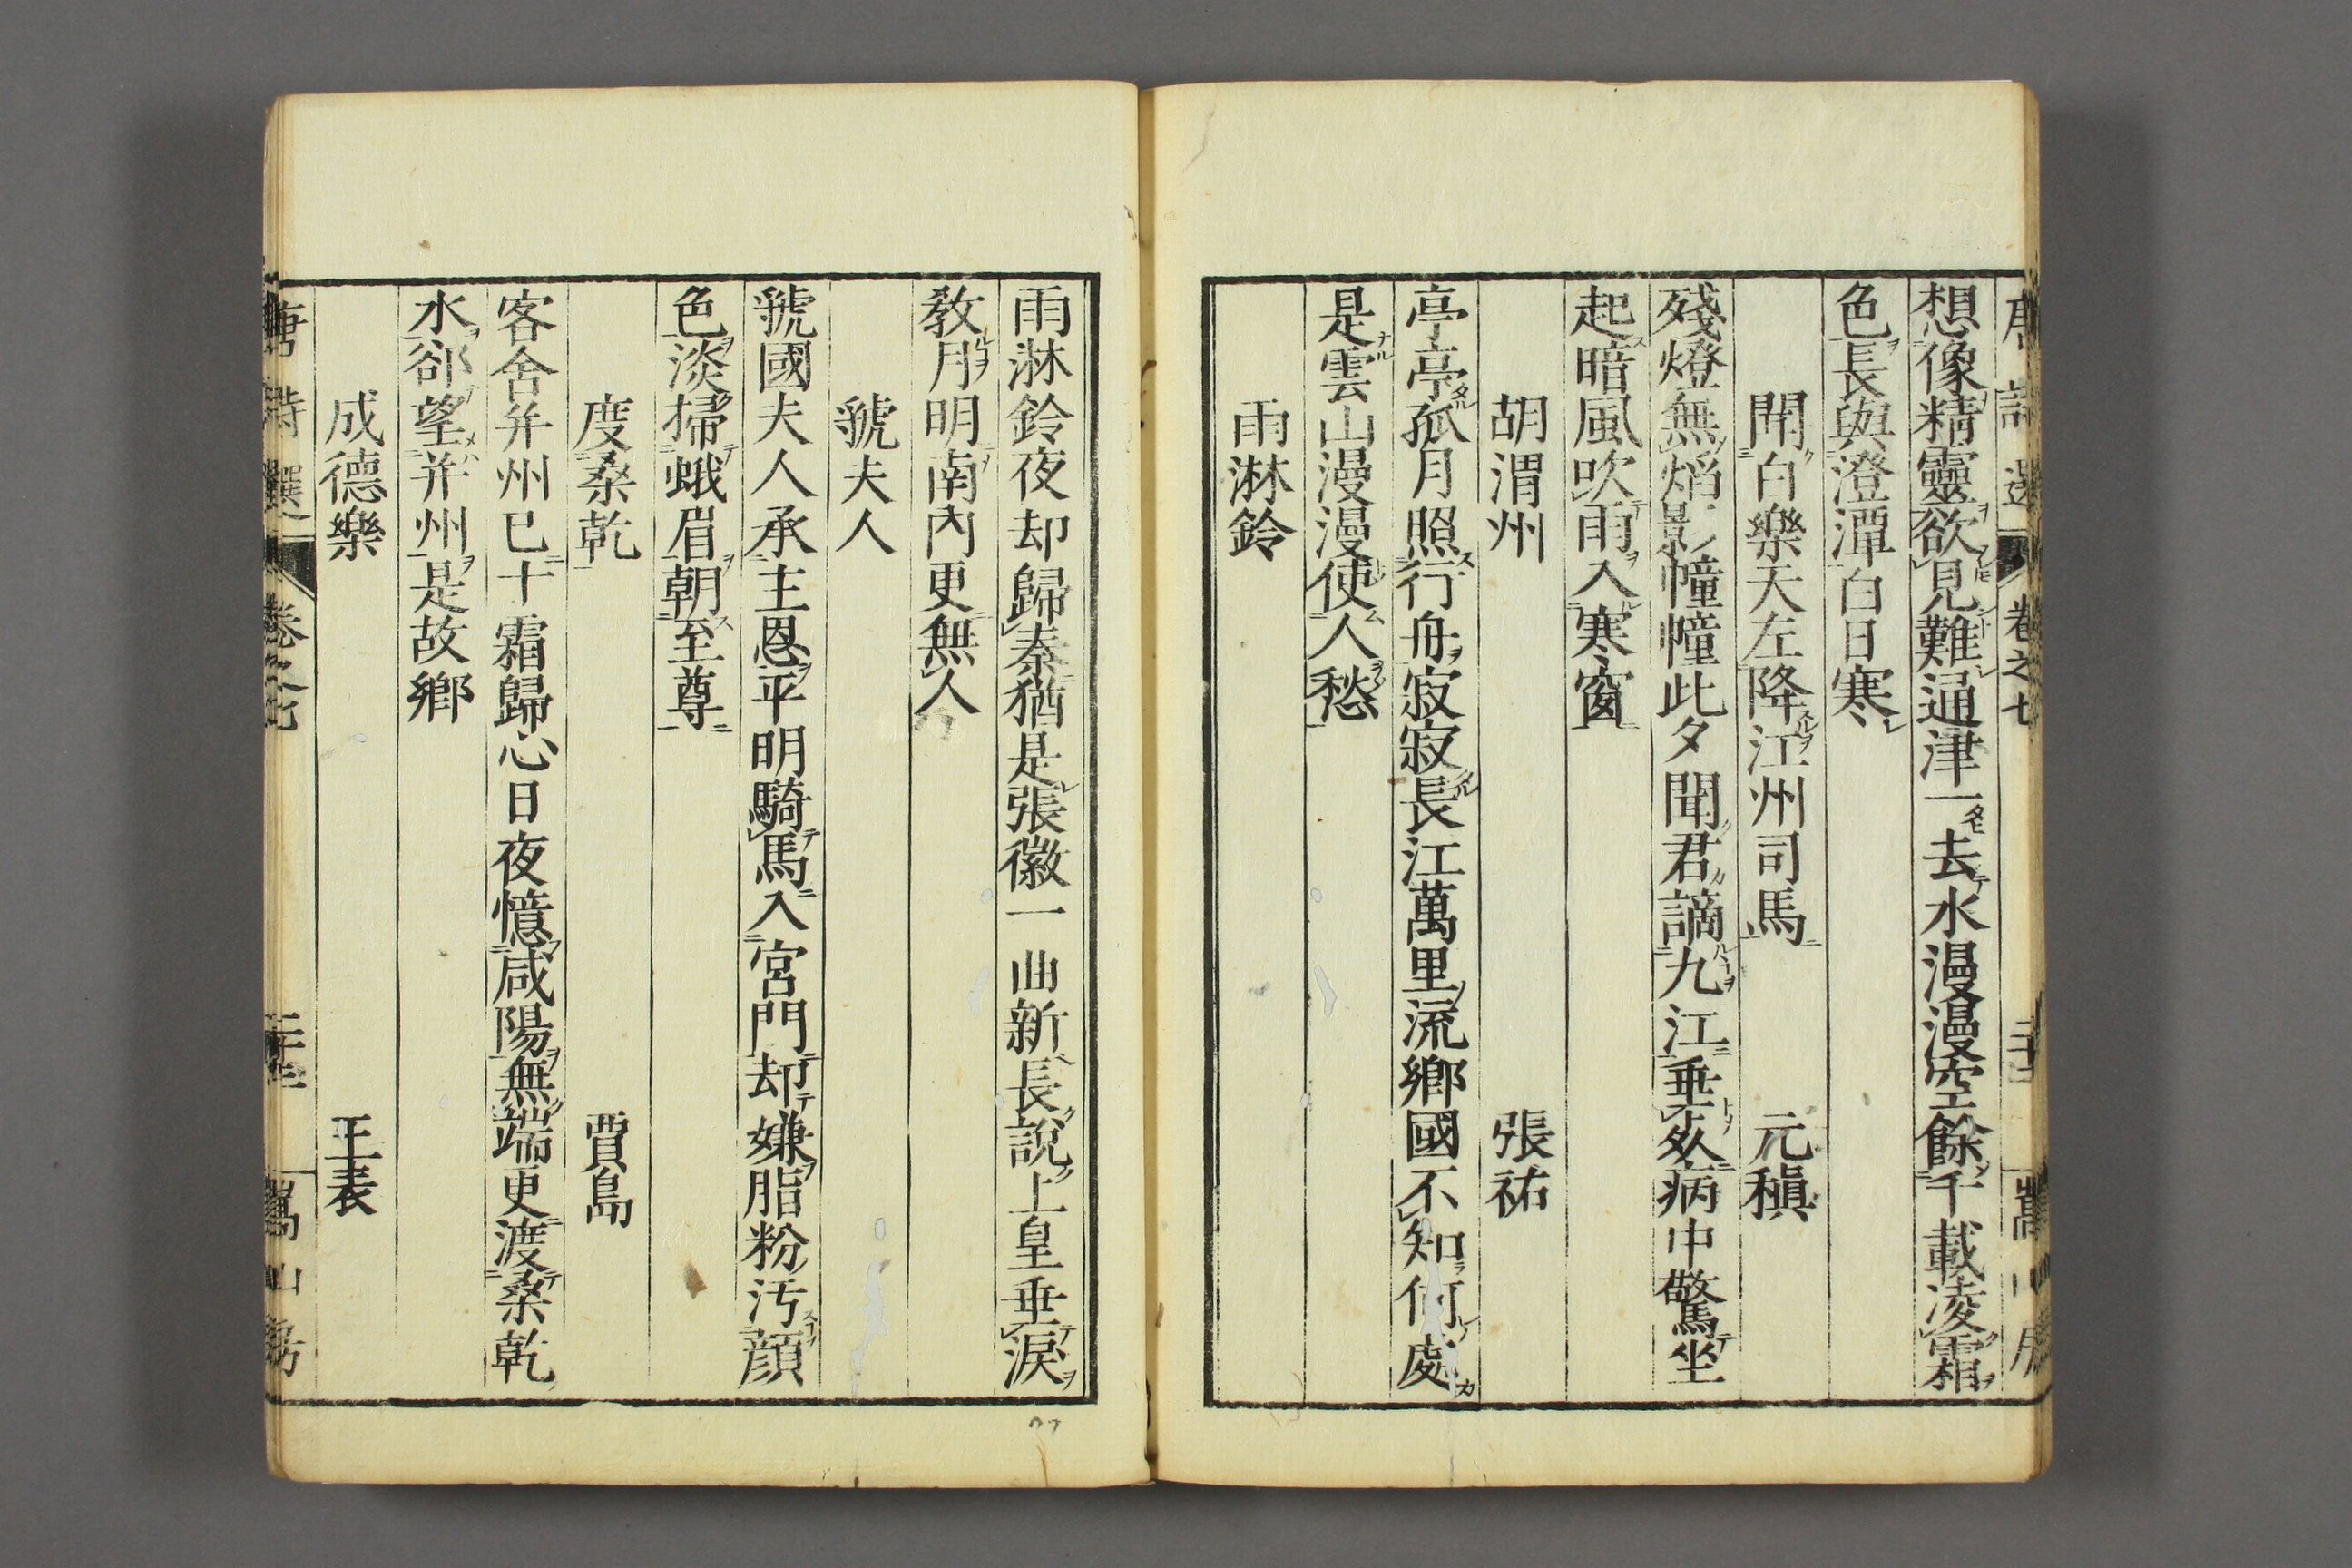 唐詩選 卷之七 嵩山房
想像精靈欲見難通津一去水漫漫空餘千載凌霜
色長與澄潭白日寒
聞白樂天左降江州司馬 元稹
殘燈無焰影幢幢此夕聞君謫九江垂死病中驚坐
起暗風吹雨入寒窗
胡渭州 張祐
亭亭孤月照行舟寂寂長江萬里流鄉國不知何處
是雲山漫漫使人愁
雨淋鈴
雨淋鈴夜却歸秦猶是張徽一曲新長說上皇垂淚
教月明南內更無人
虢夫人
虢國夫人承主恩平明騎馬入宮門却嫌脂粉汚顏
色淡掃蛾眉朝至尊
度桑乾 賈島
客舍并州已十霜歸心日夜憶咸陽無端更渡桑乾
水卻望并州是故鄉
成德樂 王表
唐詩選 卷之七 嵩山房